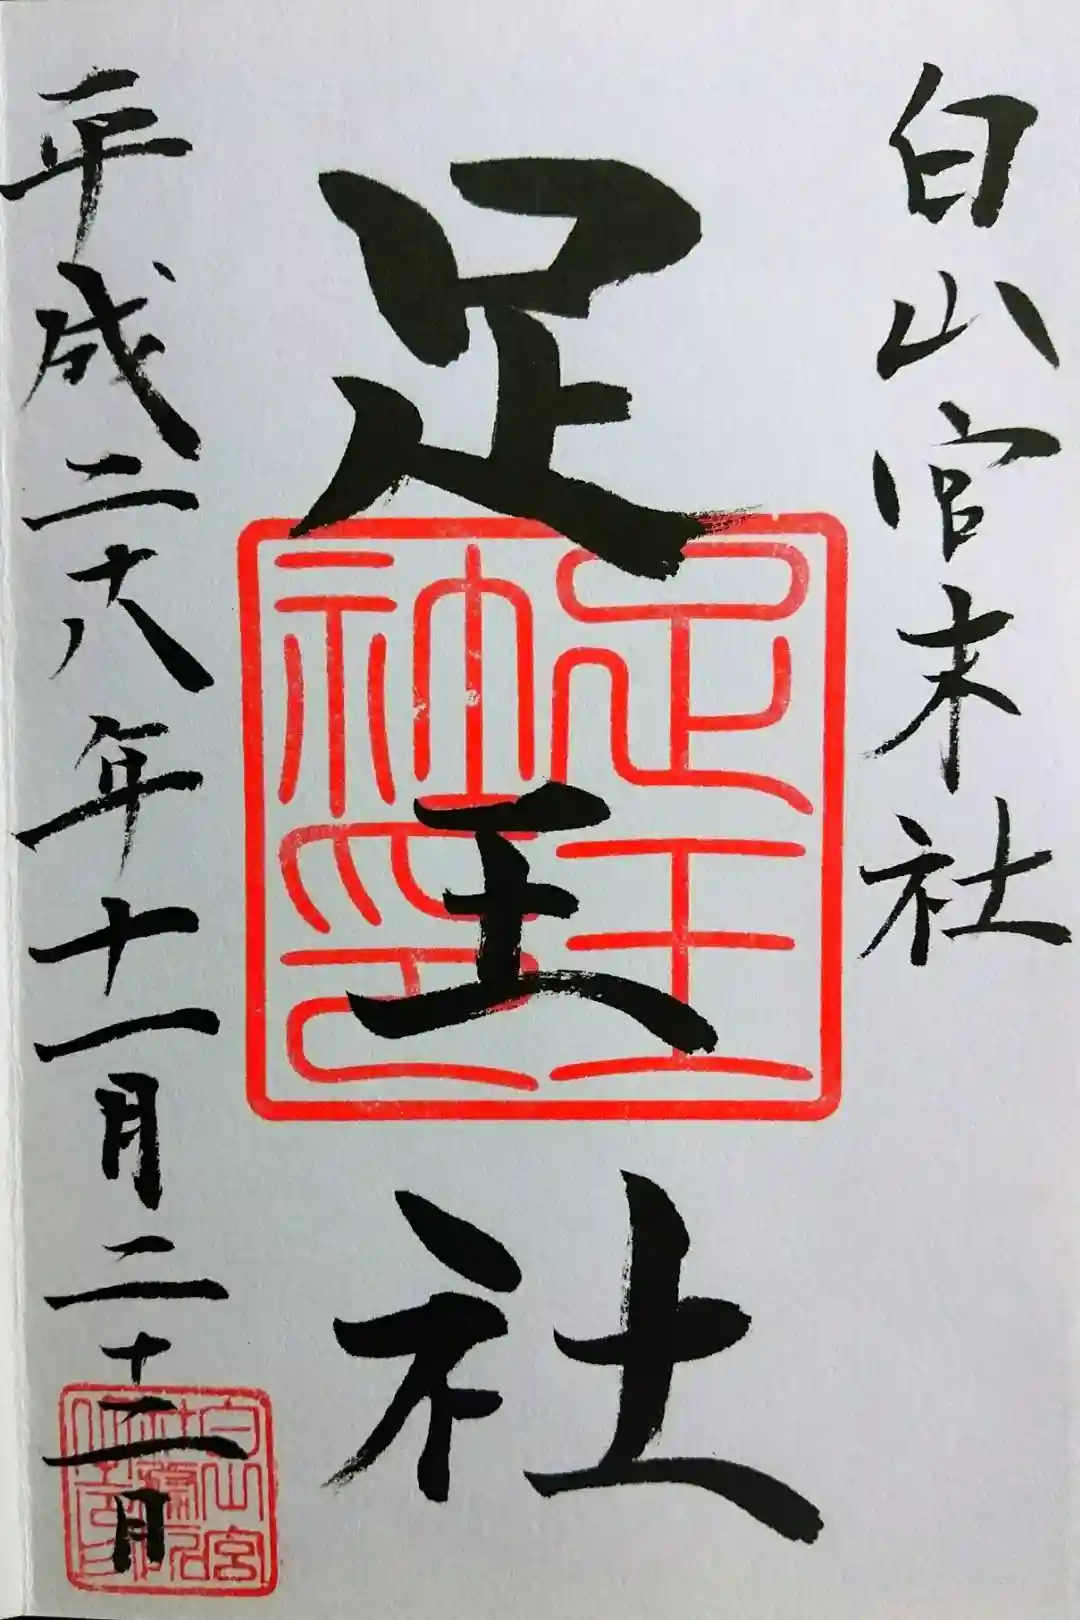 白山宮末社
足王社
平成二十八年十一月二十二日
足王
神印
白山宮
社務所